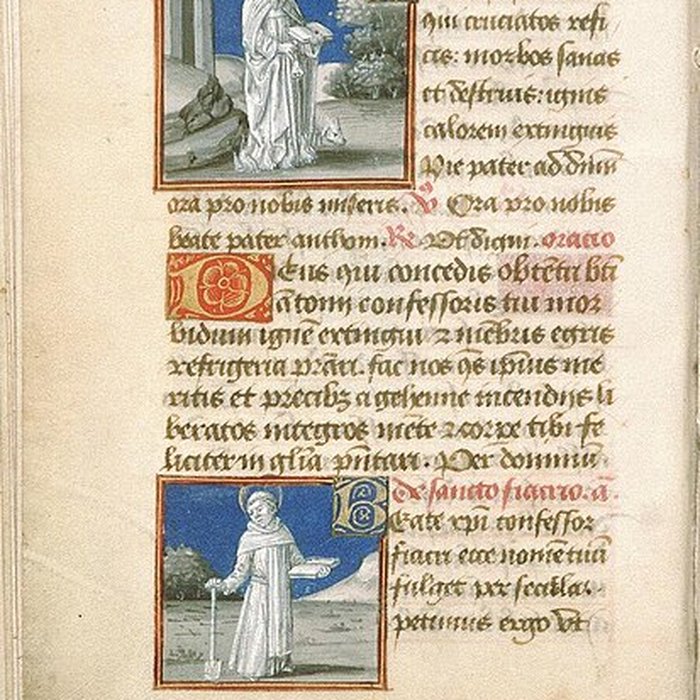 qui cruciatos refi
cis: morbos sanas
et destruis: ignis
calorem extinguis
Pie pater ad dnm̄
ora pro nobis miseris. V̄ Ora pro nobis
beate pater anthoni. R̄ Ut digni. oratio
Deus qui concedis obtentu bti
antonij confessoris tui mor
bidum ignē extingui ⁊ mēbris egris
refrigeria prari. fac nos qs ipsius me
ritis et precibꝫ a gehenne incendijs li
beratos integros mēte ⁊ corpe tibi fe
liciter in glīa pn̄tari. Per dominū.
De sancto fiacrio. ā.
Beate xpi confessor
fiacri ecce nomē tuū
fulget per secula.
petimus ergo ut